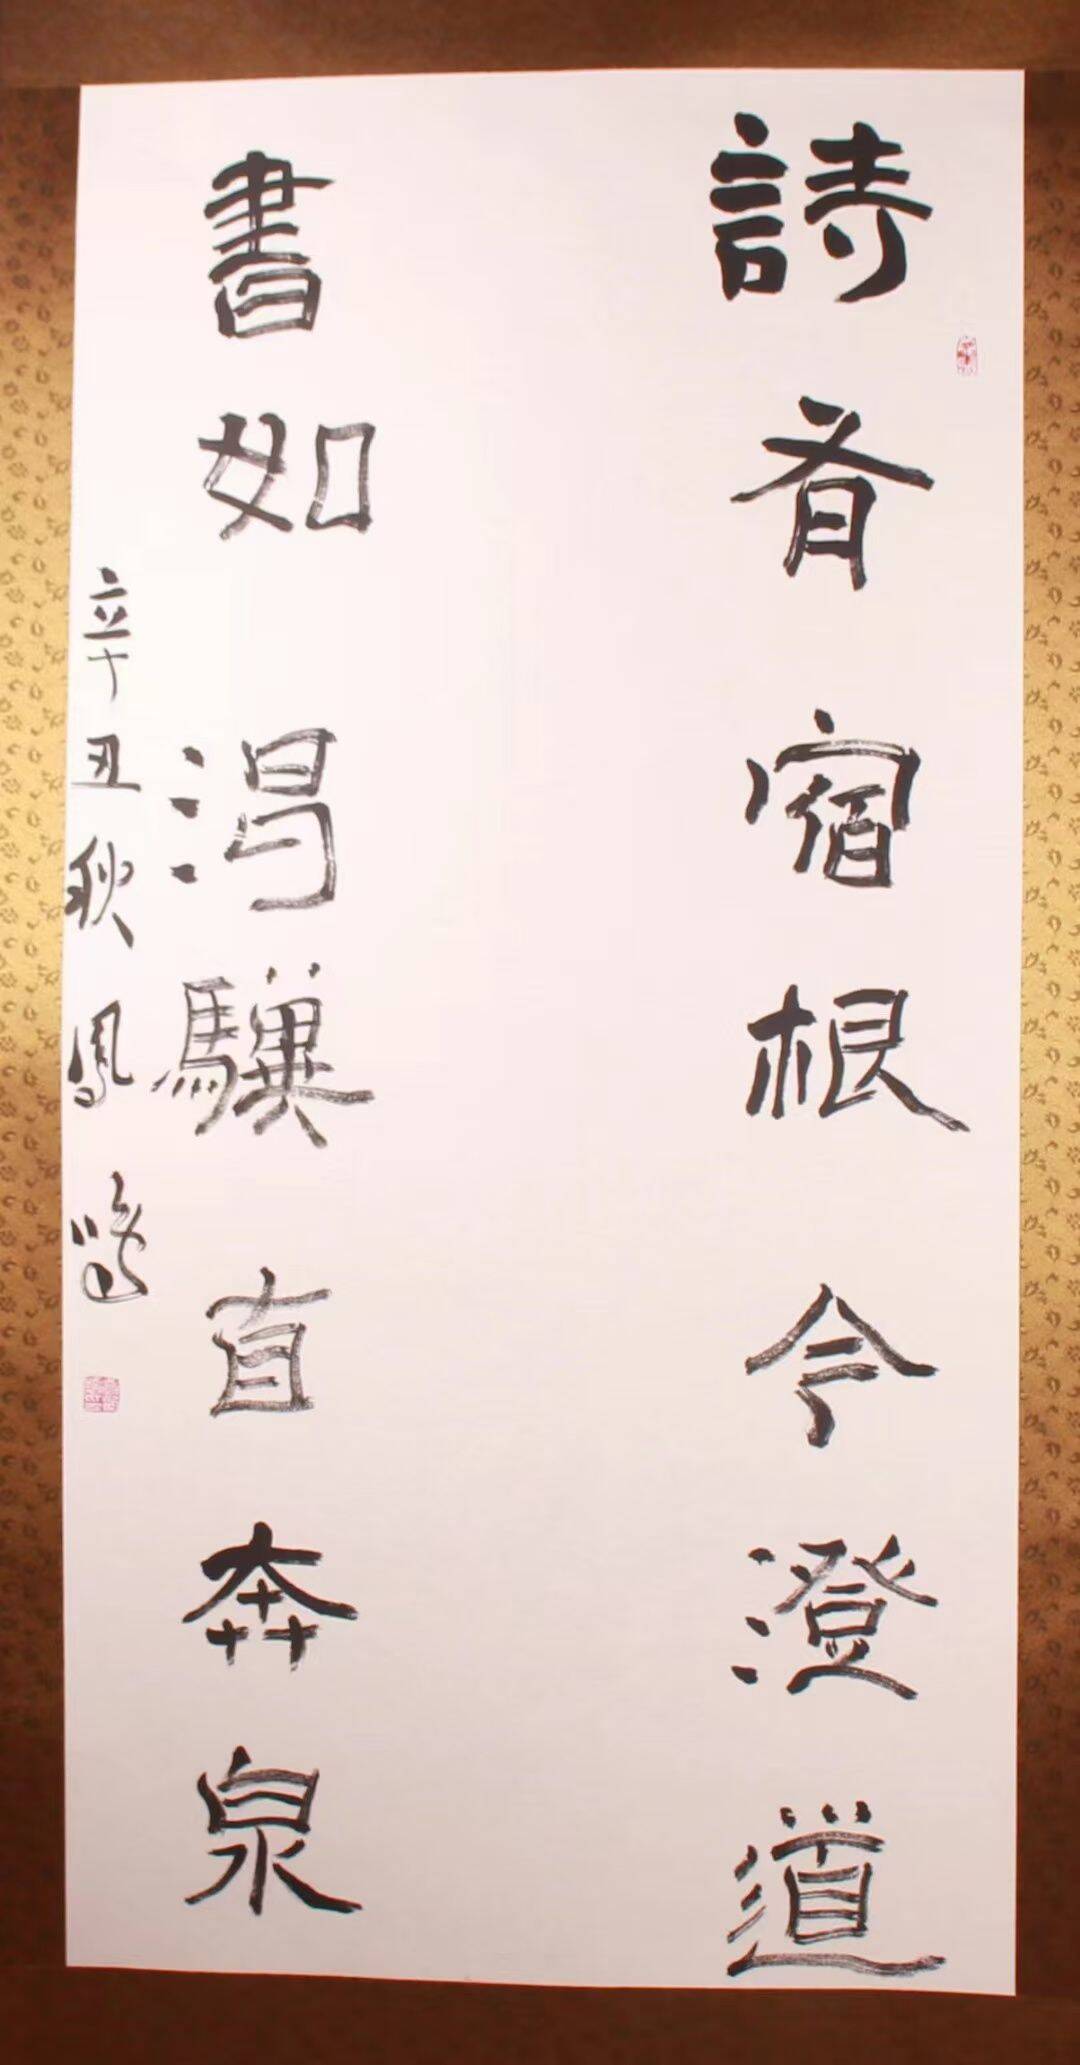 詩有宿根今澄道
書如渴驥直奔泉
辛丑秋鳳鳴